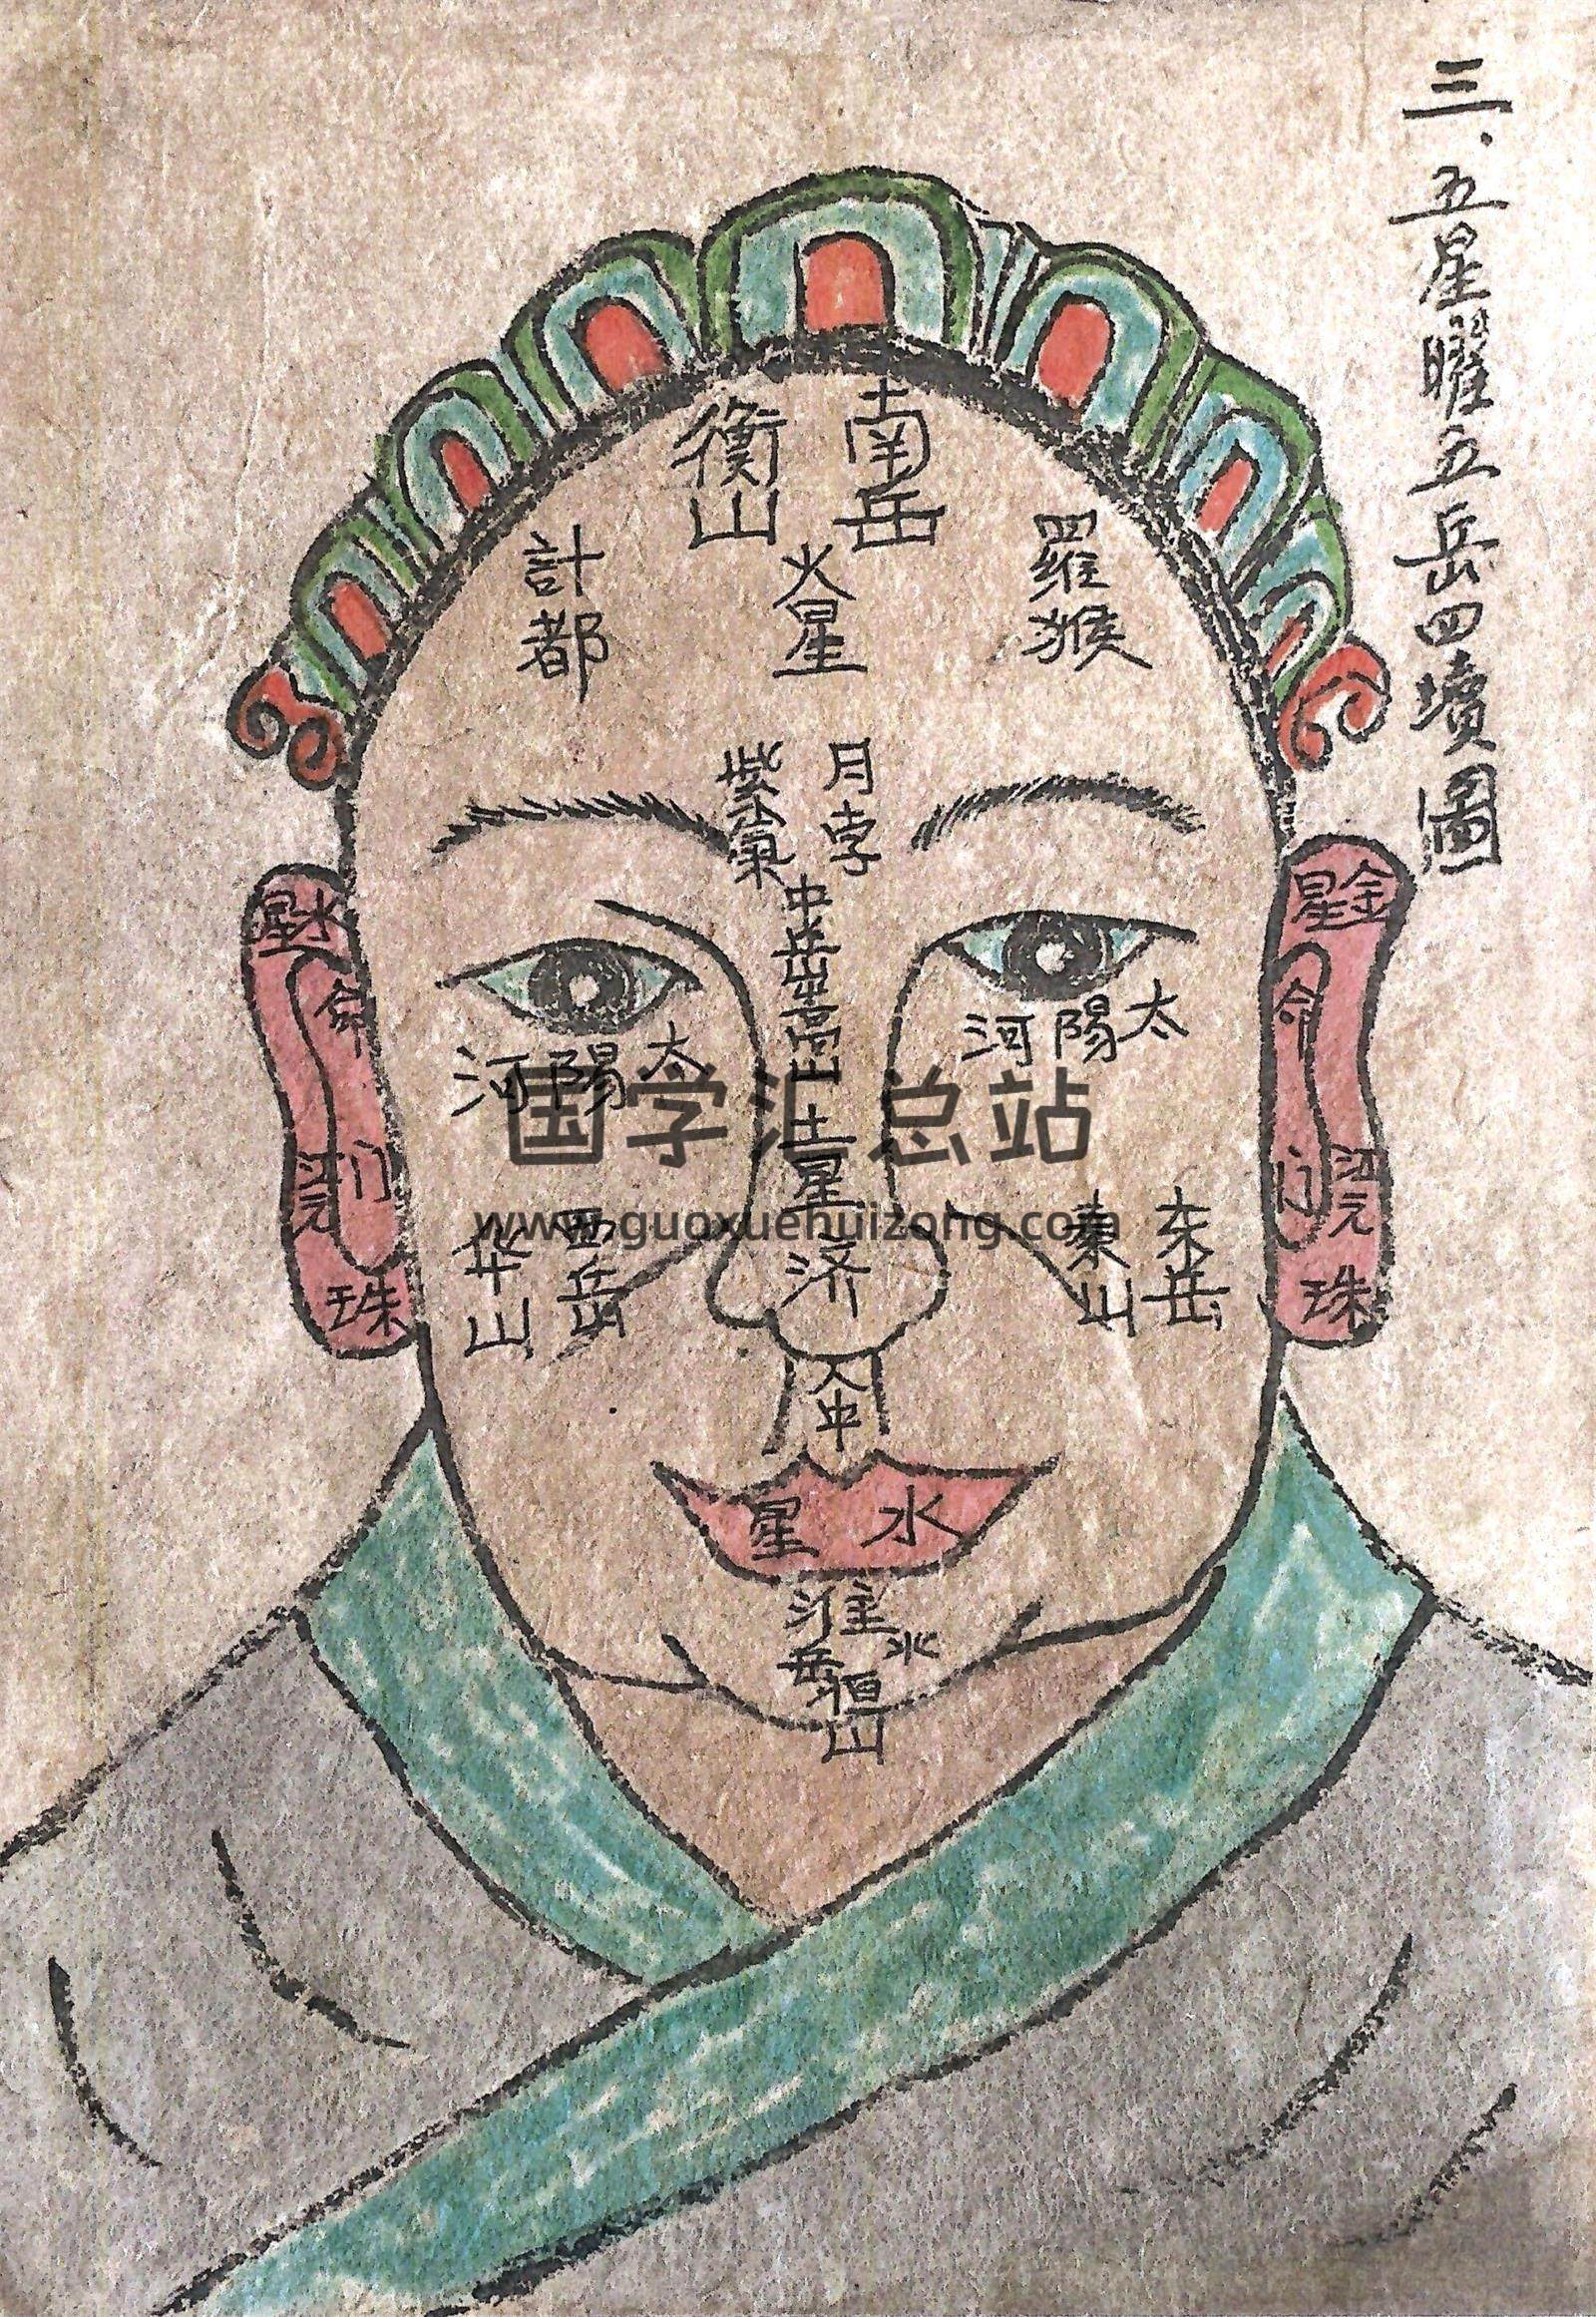 三.五星曜五岳四瀆圖
南岳
衡山
火星
羅猴
計都
月孛
紫氣
中岳嵩山土星
济
金星
命门
珠
水星
命门
珠
太陽河
太陽河
东岳
秦山
西岳
华山
人中
水星
淮水
岳恒山
国学汇总站
www.guoxuehuizong.com